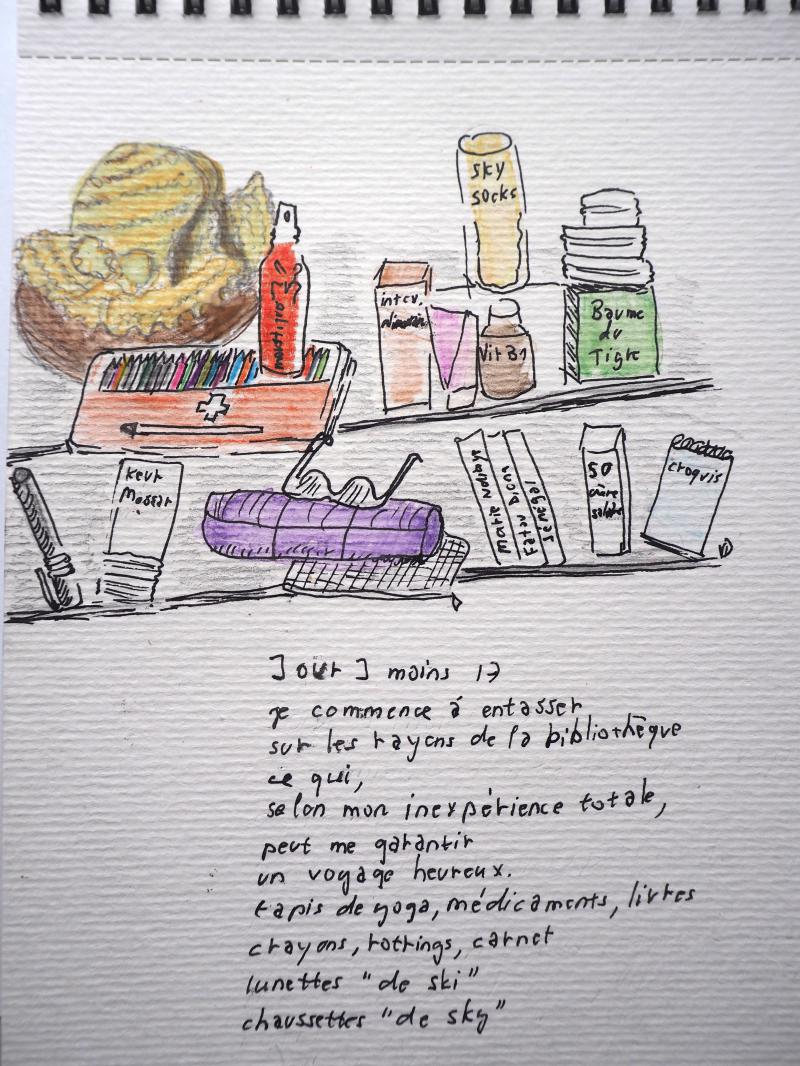 sky
socks
Baume
du
Tigre
Vit B1
Keur
Massar
Marie Ndiaye
Fatou Diome
Sénégal
50
crème
solaire
croquis
Jour J moins 17
je commence à entasser
sur les rayons de la bibliothèque
ce qui,
selon mon inexpérience totale,
peut me garantir
un voyage heureux.
tapis de yoga, médicaments, livres
crayons, rotrings, carnet
lunettes "de ski"
chaussettes "de sky"